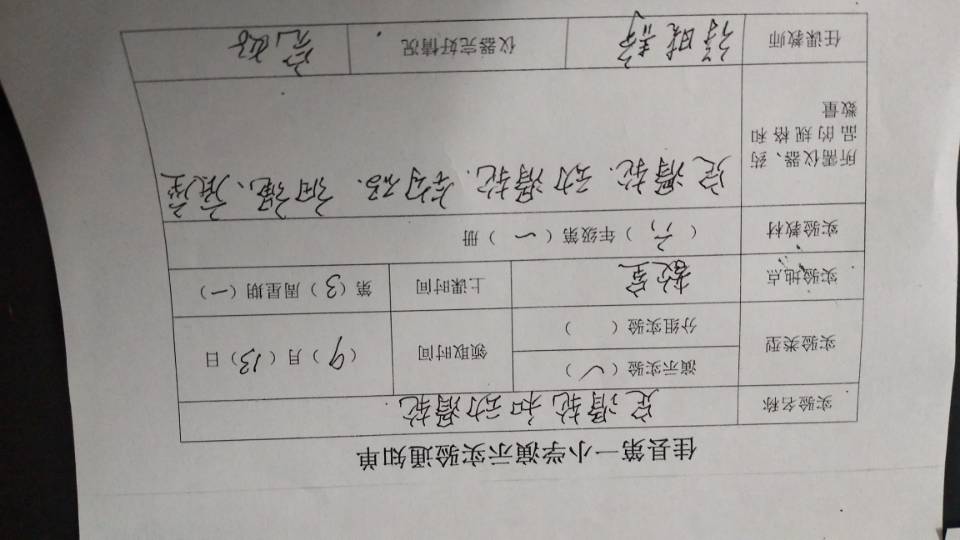 佳县第一小学演示实验通知单
实验名称 定滑轮和动滑轮
实验类型 演示实验（✓） 领取时间 （9）月（13）日
分组实验（ ）
实验地点 教室 上课时间 第（3）周星期（一）
实验教材 （六）年级第（一）册
所需仪器、药品的规格和数量 定滑轮. 动滑轮. 钩码. 细绳、底座
任课教师 仪器完好情况 完好